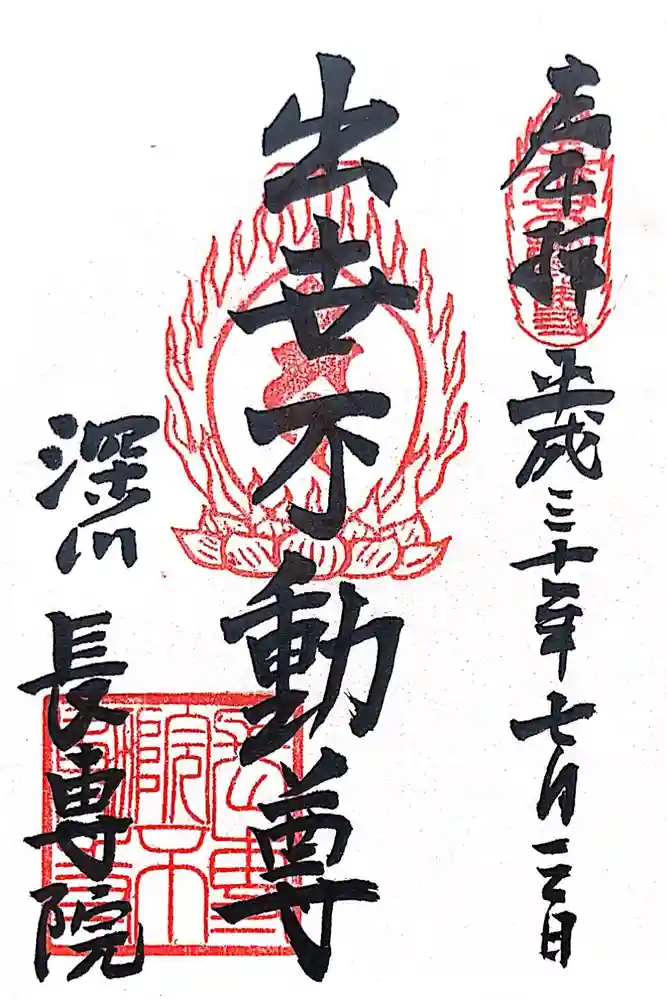 奉拝 平成三十年七月二日
出世不動尊
深川 長専院